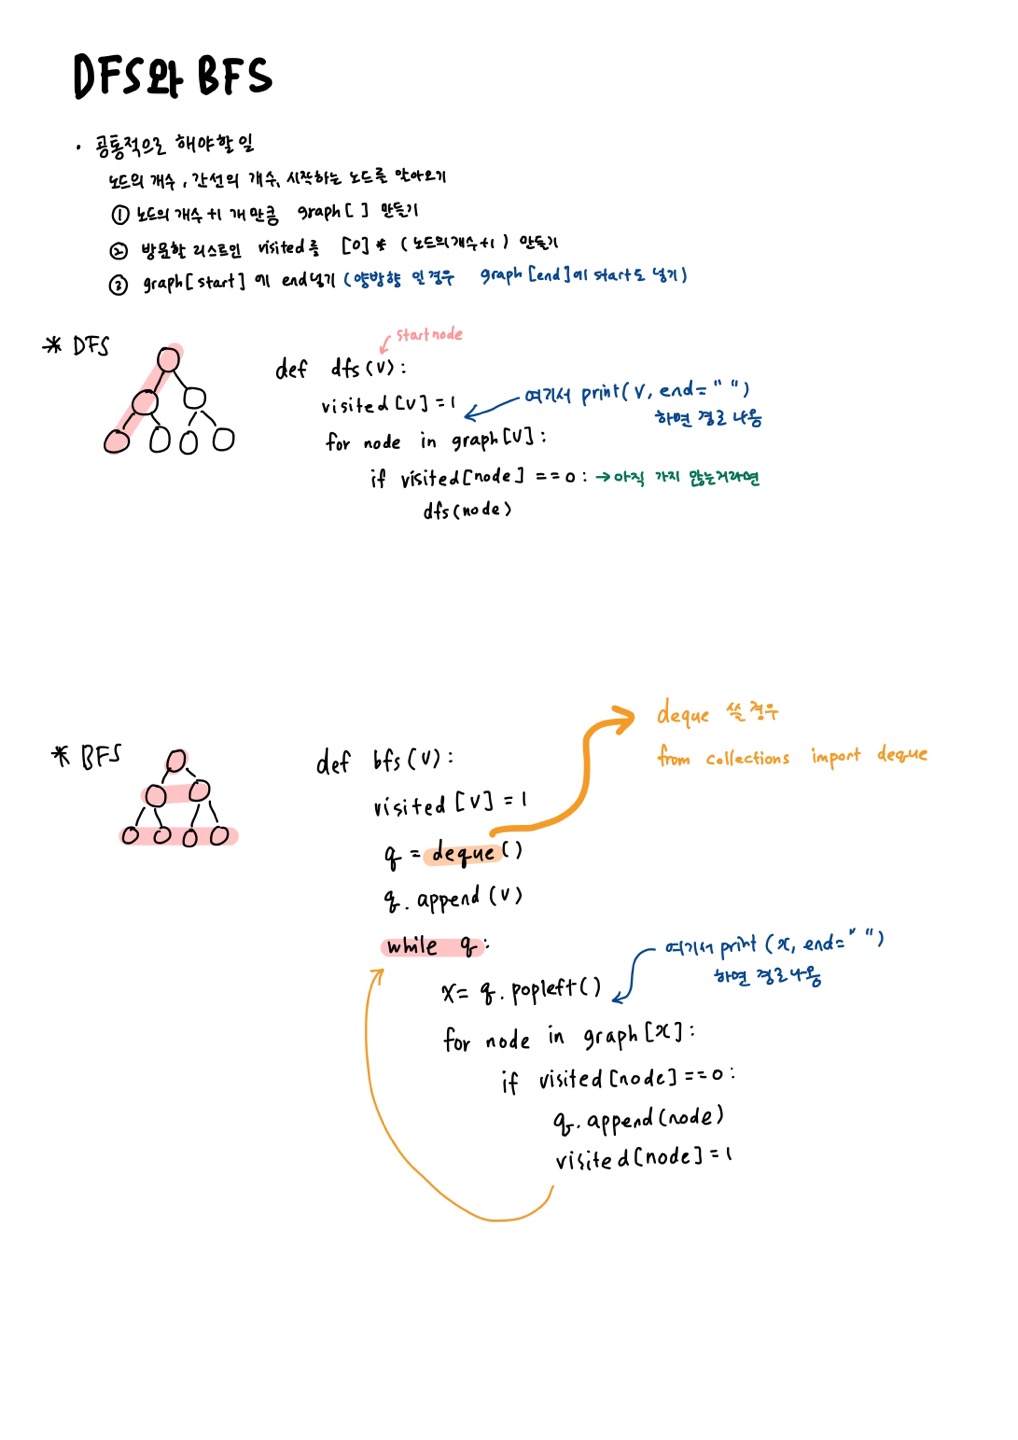 DFS와 BFS
· 공통적으로 해야할일
노드의 개수, 간선의 개수, 시작하는 노드를 받아오기
① 노드의 개수+1 개 만큼 graph[ ] 만들기
② 방문할 리스트인 visited를 [0] * (노드의개수+1) 만들기
③ graph[start] 에 end넣기 (양방향 일 경우 graph[end]에 start도 넣기)
* DFS
start node
def dfs(v):
visited[v] = 1
여기서 print(v, end=" ")
하면 경로 나옴
for node in graph[v]:
if visited[node] ==0: →아직 가지 않는거라면
dfs(node)
deque 쓸 경우
from collections import deque
* BFS
def bfs(v):
visited[v] = 1
q = deque()
q.append(v)
while q:
여기서 print(x, end=" ")
하면 경로나옴
x= q.popleft()
for node in graph[x]:
if visited[node]==0:
q.append(node)
visited[node]=1